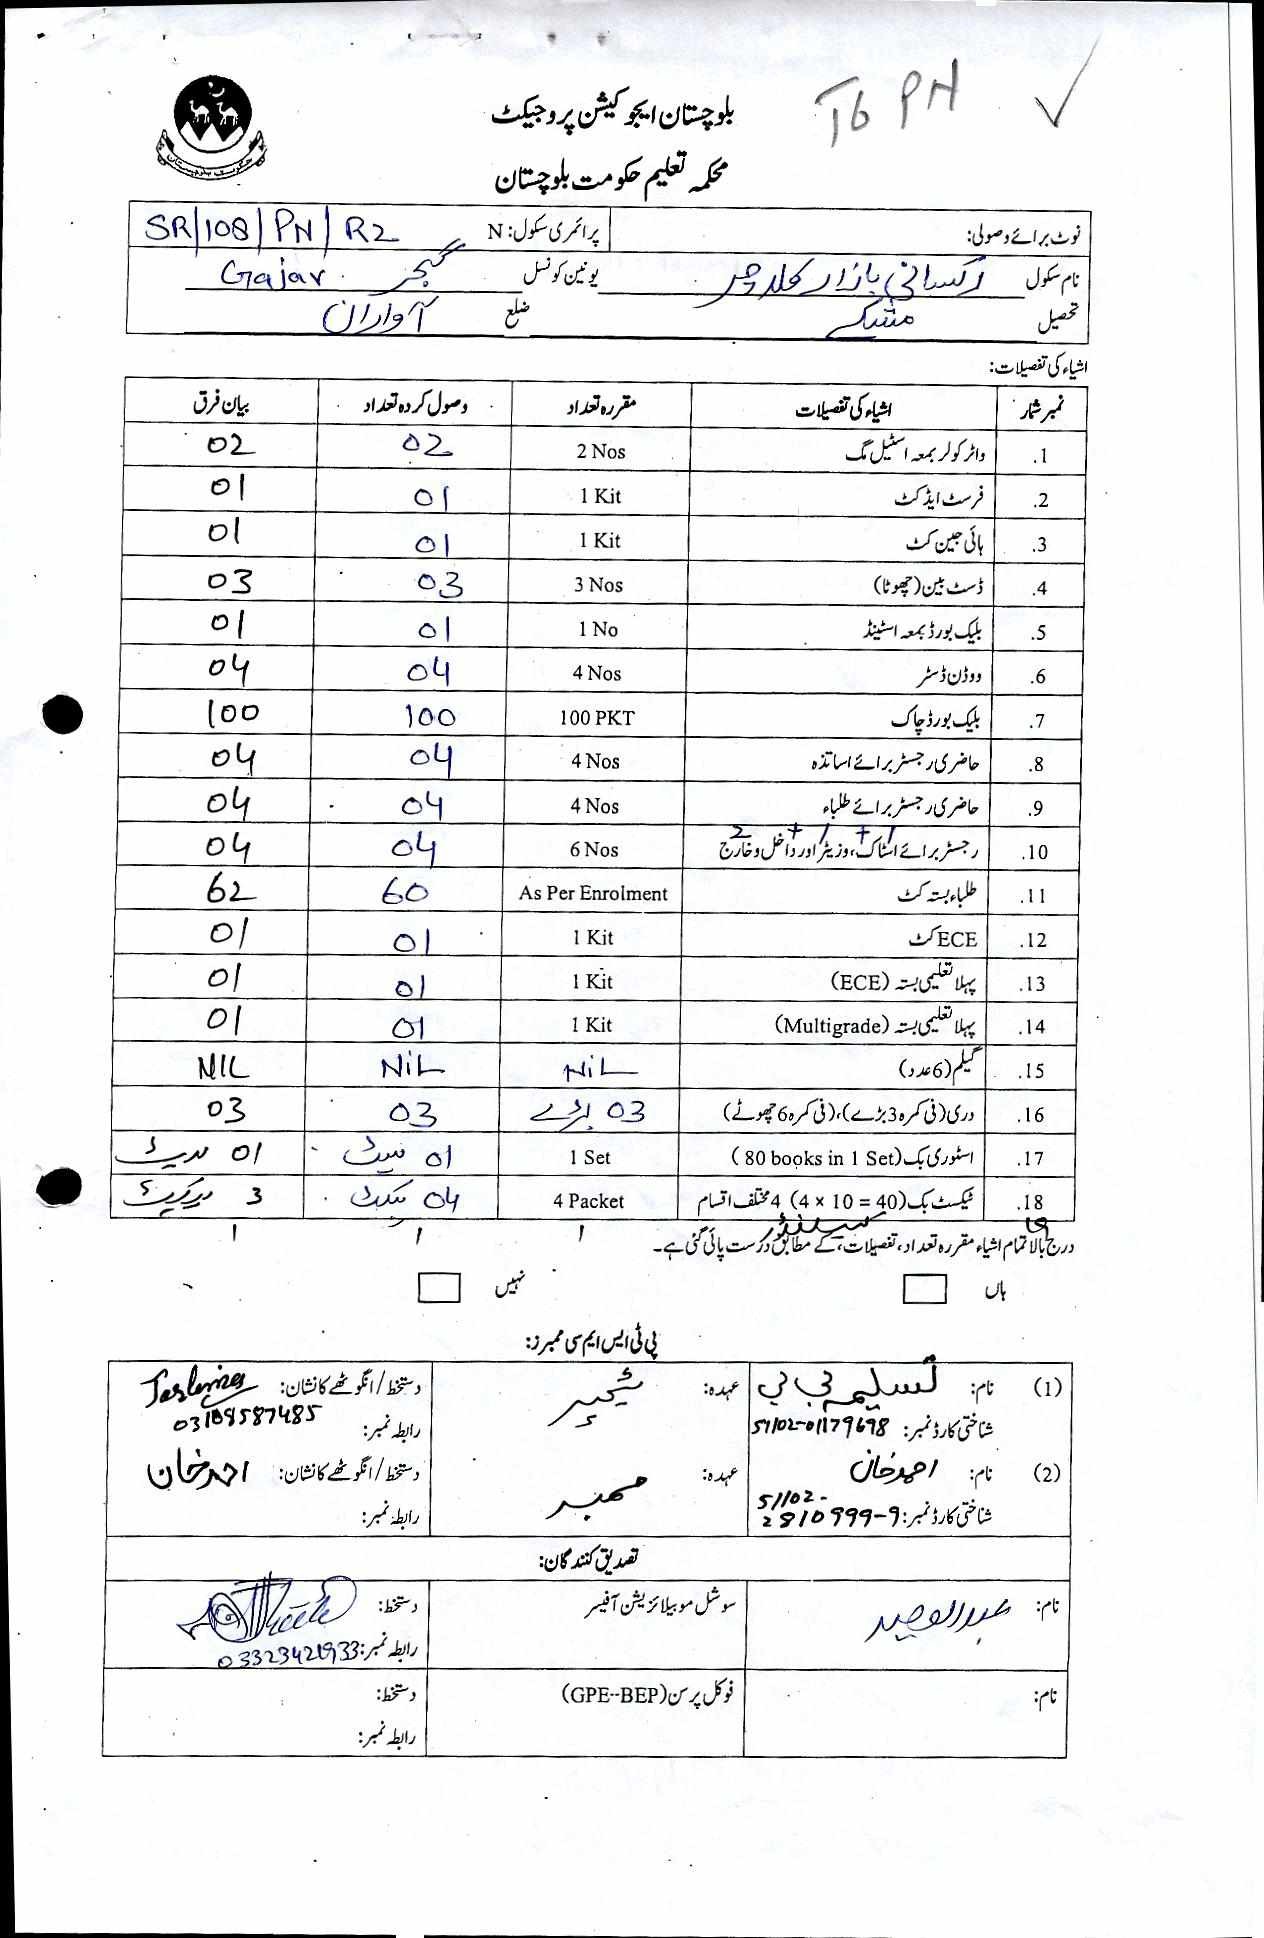 T6 PN
بلوچستان ایجوکیشن پروجیکٹ
محکمہ تعلیم حکومت بلوچستان
نوٹ برائے وصولی: پرائمری سکول: N SR/108/PN/R2
نام سکول بازار یونین کونسل گجر Gajar
تحصیل مشکے ضلع آواران
اشیاء کی تفصیلات:
نمبر شمار اشیاء کی تفصیلات مقررہ تعداد وصول کردہ تعداد بیان فرق
1. واٹر کولر بمعہ اسٹیل مگ 2 Nos 02 02
2. فرسٹ ایڈ کٹ 1 Kit 01 01
3. ہائی جین کٹ 1 Kit 01 01
4. ڈسٹ بین (چھوٹا) 3 Nos 03 03
5. بلیک بورڈ بمعہ اسٹینڈ 1 No 01 01
6. ووڈن ڈسٹر 4 Nos 04 04
7. بلیک بورڈ چاک 100 PKT 100 100
8. حاضری رجسٹر برائے اساتذہ 4 Nos 04 04
9. حاضری رجسٹر برائے طلباء 4 Nos 04 04
1 + 1 + 2
10. رجسٹر برائے اسٹاک، وزیٹر اور داخل و خارج 6 Nos 04 04
11. طلباء بستہ کٹ As Per Enrolment 60 62
12. ECE کٹ 1 Kit 01 01
13. پہلا تعلیمی بستہ (ECE) 1 Kit 01 01
14. پہلا تعلیمی بستہ (Multigrade) 1 Kit 01 01
15. گلیم (6 عدد) NiL NiL NIL
16. دری (فی کمرہ 3 بڑے)، (فی کمرہ 6 چھوٹے) 03 بڑے 03 03
17. اسٹوری بک (80 books in 1 Set) 1 Set 01 سیٹ 01 سیٹ
18. ٹیکسٹ بک (4 × 10 = 40) 4 مختلف اقسام 4 Packet 04 پیکٹ 3
19 1 1 1
درج بالا تمام اشیاء مقررہ تعداد، تفصیلات، کے مطابق درست پائی گئی ہے۔
ہاں نہیں
پی ٹی ایس ایم سی ممبرز:
(1) نام: تسلیمہ بی بی عہدہ: ٹیچر دستخط / انگوٹھے کا نشان: Taslima
شناختی کارڈ نمبر: 51102-01179698 رابطہ نمبر: 03109587485
(2) نام: احمد خان عہدہ: ممبر دستخط / انگوٹھے کا نشان: احمد خان
شناختی کارڈ نمبر: 51102-2810999-9 رابطہ نمبر:
تصدیق کنندگان:
نام: عبدالوحید سوشل موبیلائزیشن آفیسر دستخط:
رابطہ نمبر: 03323421933
نام: فوکل پرسن (GPE--BEP) دستخط:
رابطہ نمبر: